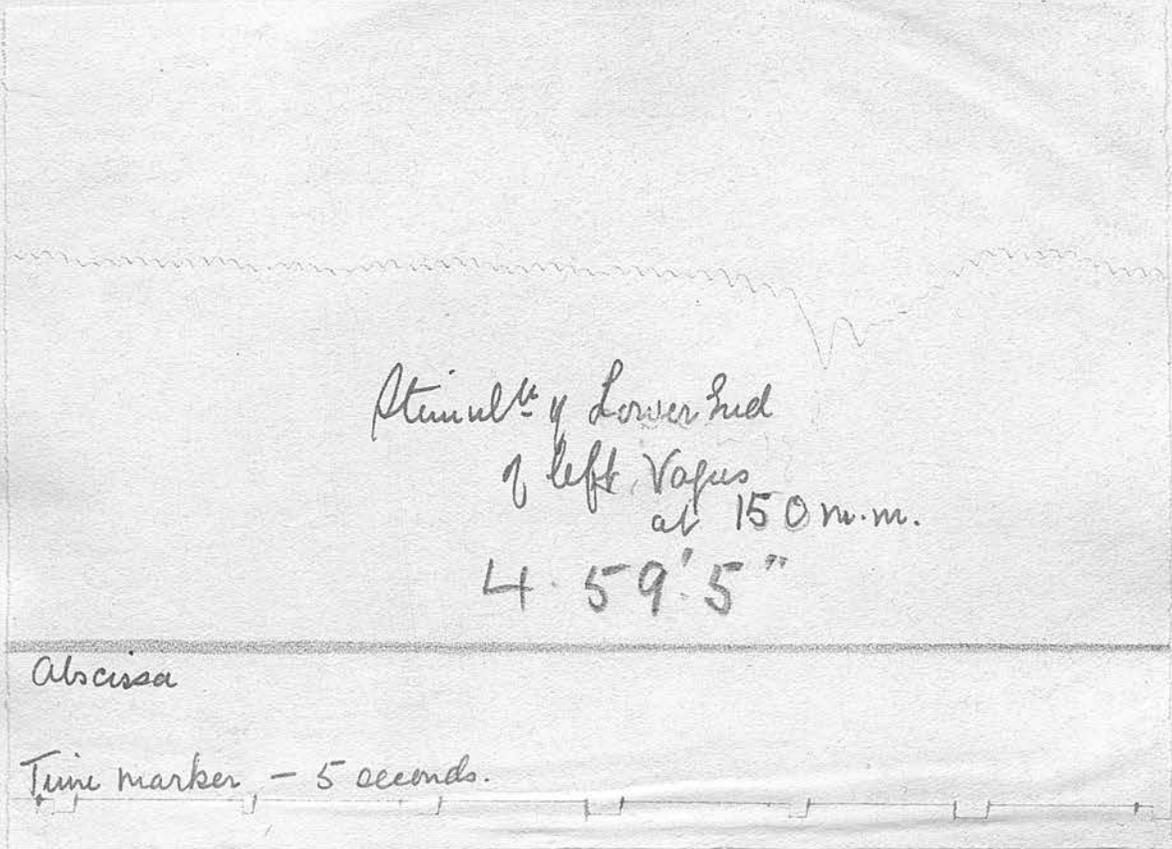 Stimulⁿ of Lower End
of left Vagus
at 150 m.m.
4. 59' 5"
Abscissa
Time marker – 5 seconds.